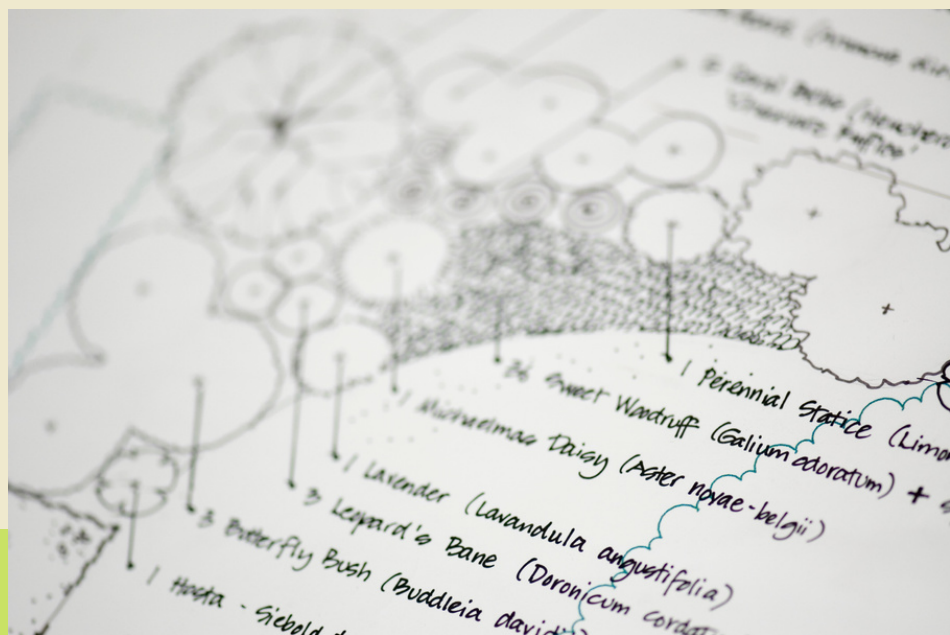 Coral Bells (Heuchera
1 Perennial Statice (Limo
36 Sweet Woodruff (Galium odoratum) +
1 Michaelmas Daisy (Aster novae-belgii)
1 Lavender (Lavandula angustifolia)
3 Leopard's Bane (Doronicum cordat
3 Butterfly Bush (Buddleia davidi
1 Hosta - Siebold